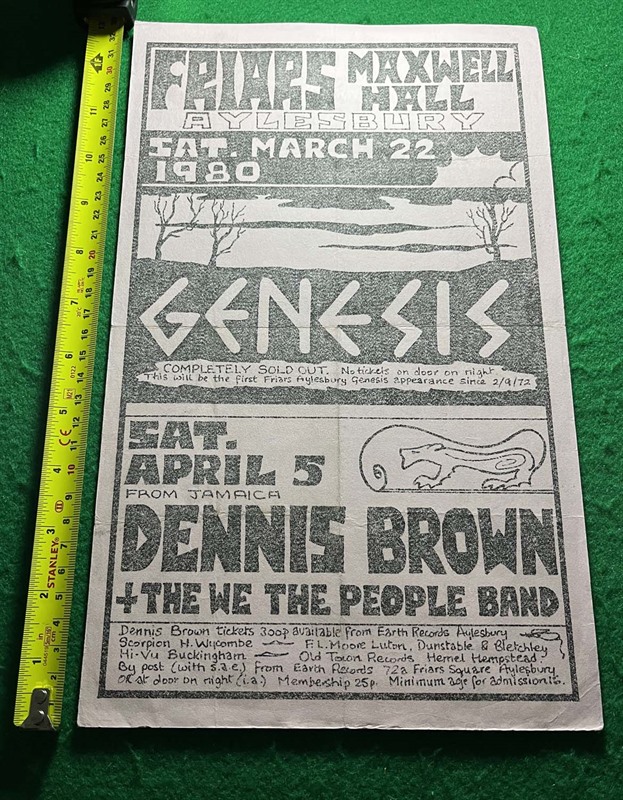 FRIARS MAXWELL HALL
AYLESBURY
SAT. MARCH 22
1980
GENESIS
COMPLETELY SOLD OUT. No tickets on door on night
This will be the first Friars Aylesbury Genesis appearance since 2/9/72
SAT.
APRIL 5
FROM JAMAICA
DENNIS BROWN
+ THE WE THE PEOPLE BAND
Dennis Brown tickets 300p available from Earth Records Aylesbury
Scorpion H. Wycombe F.L. Moore Luton, Dunstable & Bletchley
Hi-Vu Buckingham Old Town Records Hemel Hempstead.
By post (with s.a.e.) from Earth Records 72a Friars Square Aylesbury
OR at door on night (i.a.) Membership 25p. Minimum age for admission
STANLEY